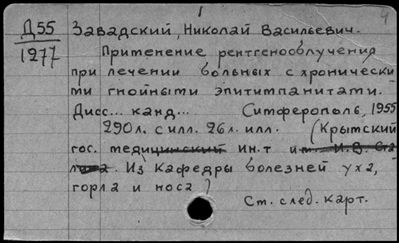 1
4
Д55 Завадский, Николай Васильевич.
1277 Применение рентгенооблучения
при лечении больных с хронически
ми гнойными эпитимпанитами.
Дисс... канд... Симферополь, 1955
290л. с илл. 26л. илл. (Крымский
гос. медицинский ин.т им. И.В. Ста
лина. Из Кафедры болезней уха,
горла и носа)
Ст. след. карт.